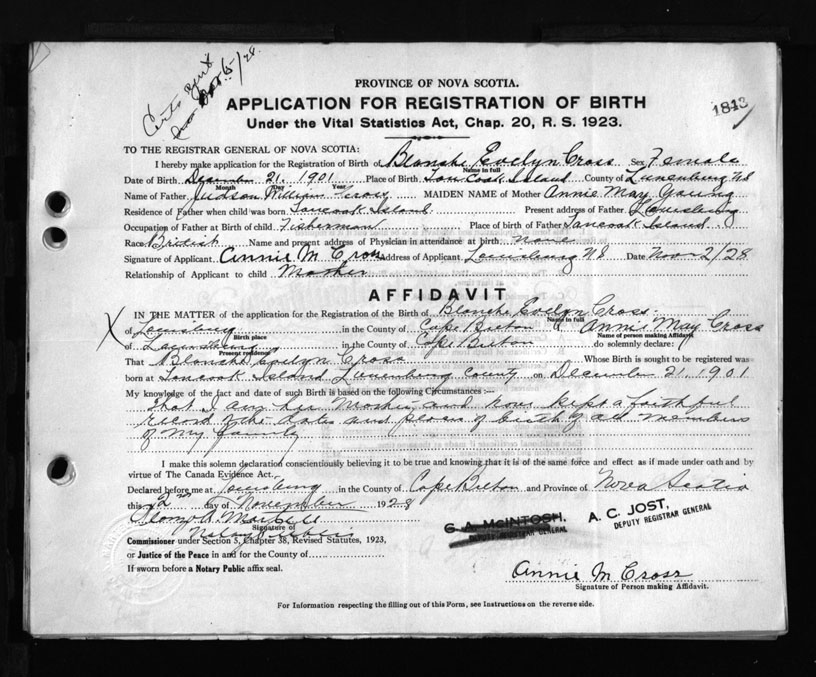 Certs
Nov 5/28.
PROVINCE OF NOVA SCOTIA.
APPLICATION FOR REGISTRATION OF BIRTH
1843
Under the Vital Statistics Act, Chap. 20, R. S. 1923.
TO THE REGISTRAR GENERAL OF NOVA SCOTIA:
I hereby make application for the Registration of Birth of Blanche Evelyn Cross Sex Female
Name in full
Date of Birth December 21, 1901 Place of Birth Tancook Island County of Lunenburg NS
Month Day Year
Name of Father Judson William Cross MAIDEN NAME of Mother Annie May Young
Residence of Father when child was born Tancook Island Present address of Father Louisburg
Occupation of Father at Birth of child Fisherman Place of birth of Father Tancook Island
Race British Name and present address of Physician in attendance at birth none
Signature of Applicant Annie M Cross Address of Applicant Louisburg NS Date Nov 2/28
Relationship of Applicant to child Mother
AFFIDAVIT
IN THE MATTER of the application for the Registration of the Birth of Blanche Evelyn Cross
Name in full
X of Louisburg in the County of Cape Breton I Annie May Cross
Birth place Name of person making Affidavit
of Louisburg in the County of Cape Breton do solemnly declare:
Present residence
That Blanche Evelyn Cross Whose Birth is sought to be registered was
born at Tancook Island Lunenburg County on December 21, 1901
My knowledge of the fact and date of such Birth is based on the following Circumstances:—
That I am her Mother and have kept a faithful
record of the dates and places of birth of all members
of my family
I make this solemn declaration conscientiously believing it to be true and knowing that it is of the same force and effect as if made under oath and by
virtue of The Canada Evidence Act.
Declared before me at Louisburg in the County of Cape Breton and Province of Nova Scotia
this 2nd day of November 1928
Signature of
Notary Public
G. A. McINTOSH. A. C. JOST,
DEPUTY REGISTRAR GENERAL DEPUTY REGISTRAR GENERAL
Commissioner under Section 5, Chapter 38, Revised Statutes, 1923,
or Justice of the Peace in and for the County of
If sworn before a Notary Public affix seal.
Annie M Cross
Signature of Person making Affidavit.
For Information respecting the filling out of this Form, see Instructions on the reverse side.